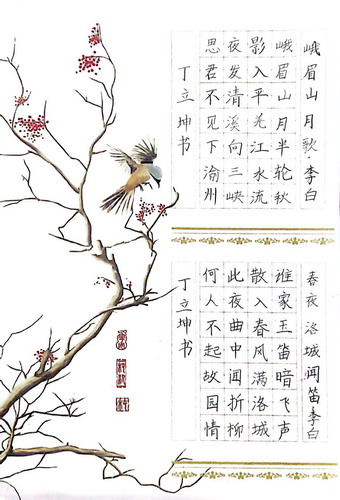 峨眉山月歌·李白
峨眉山月半轮秋
影入平羌江水流
夜发清溪向三峡
思君不见下渝州
丁立坤书
春夜洛城闻笛李白
谁家玉笛暗飞声
散入春风满洛城
此夜曲中闻折柳
何人不起故园情
丁立坤书